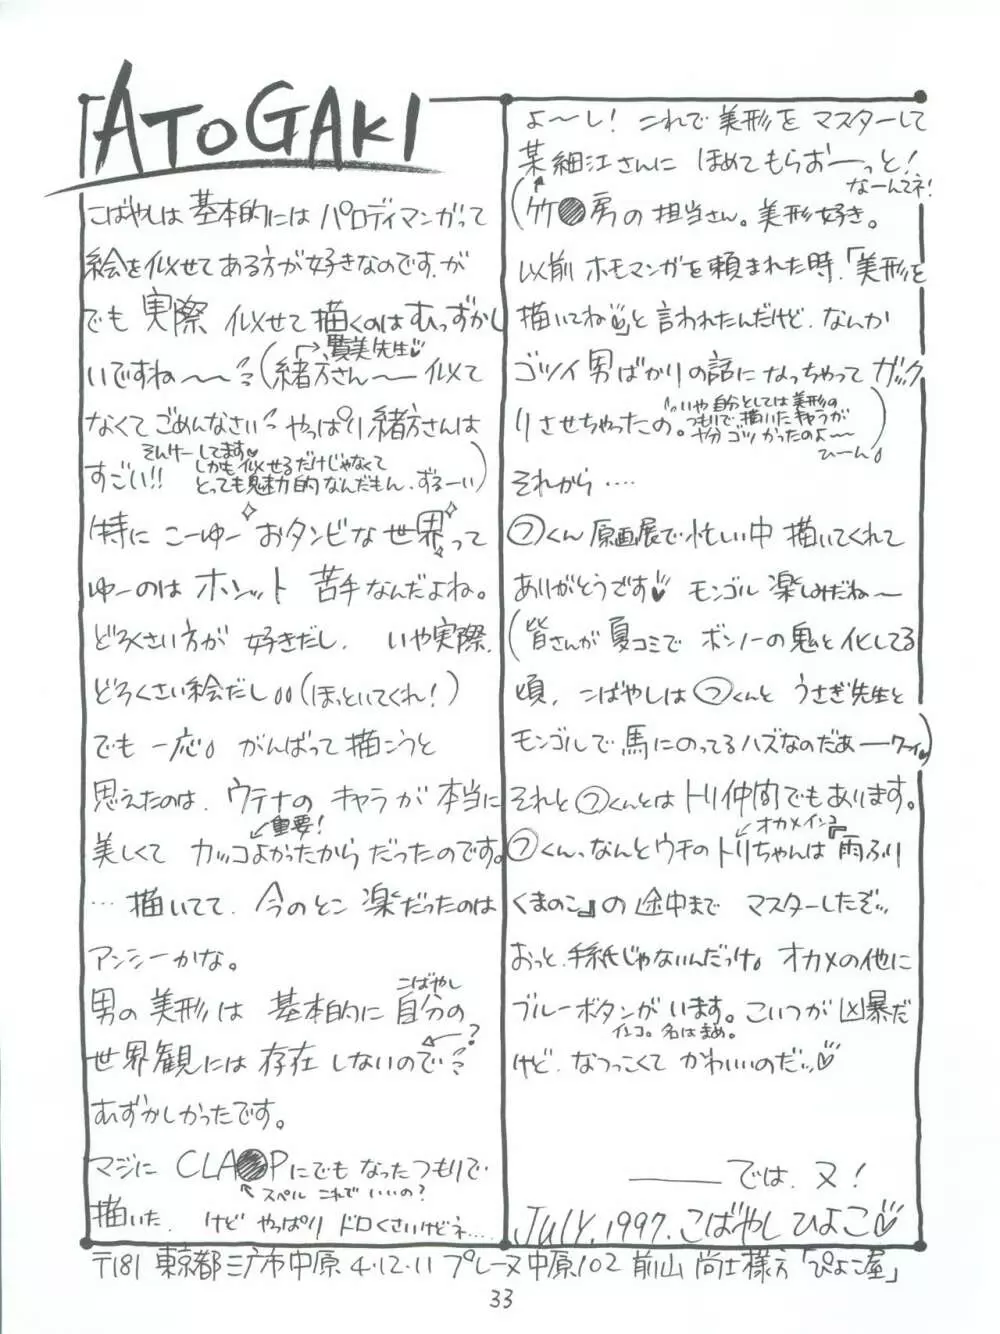 ATOGAKI
こばやしは基本的にはパロディマンガって
絵を似せてある方が好きなのです、が
でも実際 似せて描くのはむっずかし
→賢美先生♡
いですね〜〜 (緒方さん〜〜似て
なくてごめんなさい やっぱり緒方さんは
そんけーしてます♡
すごい!! しかも似せるだけじゃなくて
とっても魅力的なんだもん、ずるーい)
特に こーゆー おタンビな世界って
ゆーのは ホンット 苦手なんだよね。
どろくさい方が 好きだし、 いや実際、
どろくさい絵だし。。(ほっといてくれ!)
でも 一応。 がんばって描こうと
思えたのは、ウテナの キャラが 本当に
重要!
美しくて カッコよかったからだったのです。
…描いてて、今のとこ 楽だったのは
アンシーかな。
こばやし
男の 美形は 基本的に 自分の
?
世界観には 存在 しないので
むずかしかったです。
マジに CLA●Pにでも なったつもりで
スペル これで いいの?
描いた、 けど やっぱり ドロくさいけどネ…
よ〜〜し! これで 美形を マスターして
某細江さんに ほめてもらおーーっと!
なーんてネ!
(竹●房の 担当さん。美形好き。
以前 ホモマンガを頼まれた時、「美形を
描いてね♡」と 言われたんだけど、なんか
ゴツイ男ばかりの話に なっちゃって ガック
リさせちゃったの。いや自分としては美形の
つもりで描いたキャラが
ゴツかったのよ〜〜
ひーん。)
それから ‥‥
つくん 原画展で忙しい中 描いてくれて
ありがとうです♡ モンゴル 楽しみだね〜
(皆さんが 夏コミで ボンノーの鬼と化してる
頃、 こばやしは つくんと うさぎ先生と
モンゴルで 馬にのってるハズなのだあ──ワーイ)
それと つくんとは トリ仲間でもあります。
オカメインコ
つくん、なんとウチの トリちゃんは『雨ふり
くまのこ』の 途中まで マスターしたぞ
おっと、手紙じゃないんだっけ。オカメの他に
ブルーボタンが います。こいつが 凶暴だ
インコ。名はまめ。
けど、なつっこくて かわいいのだ♡
───では、又!
JULY.1997.こばやしひよこ♡
〒181 東京都三鷹市中原4-12-11 プレーヌ中原102 前山尚士様方「ぴよこ屋」
33